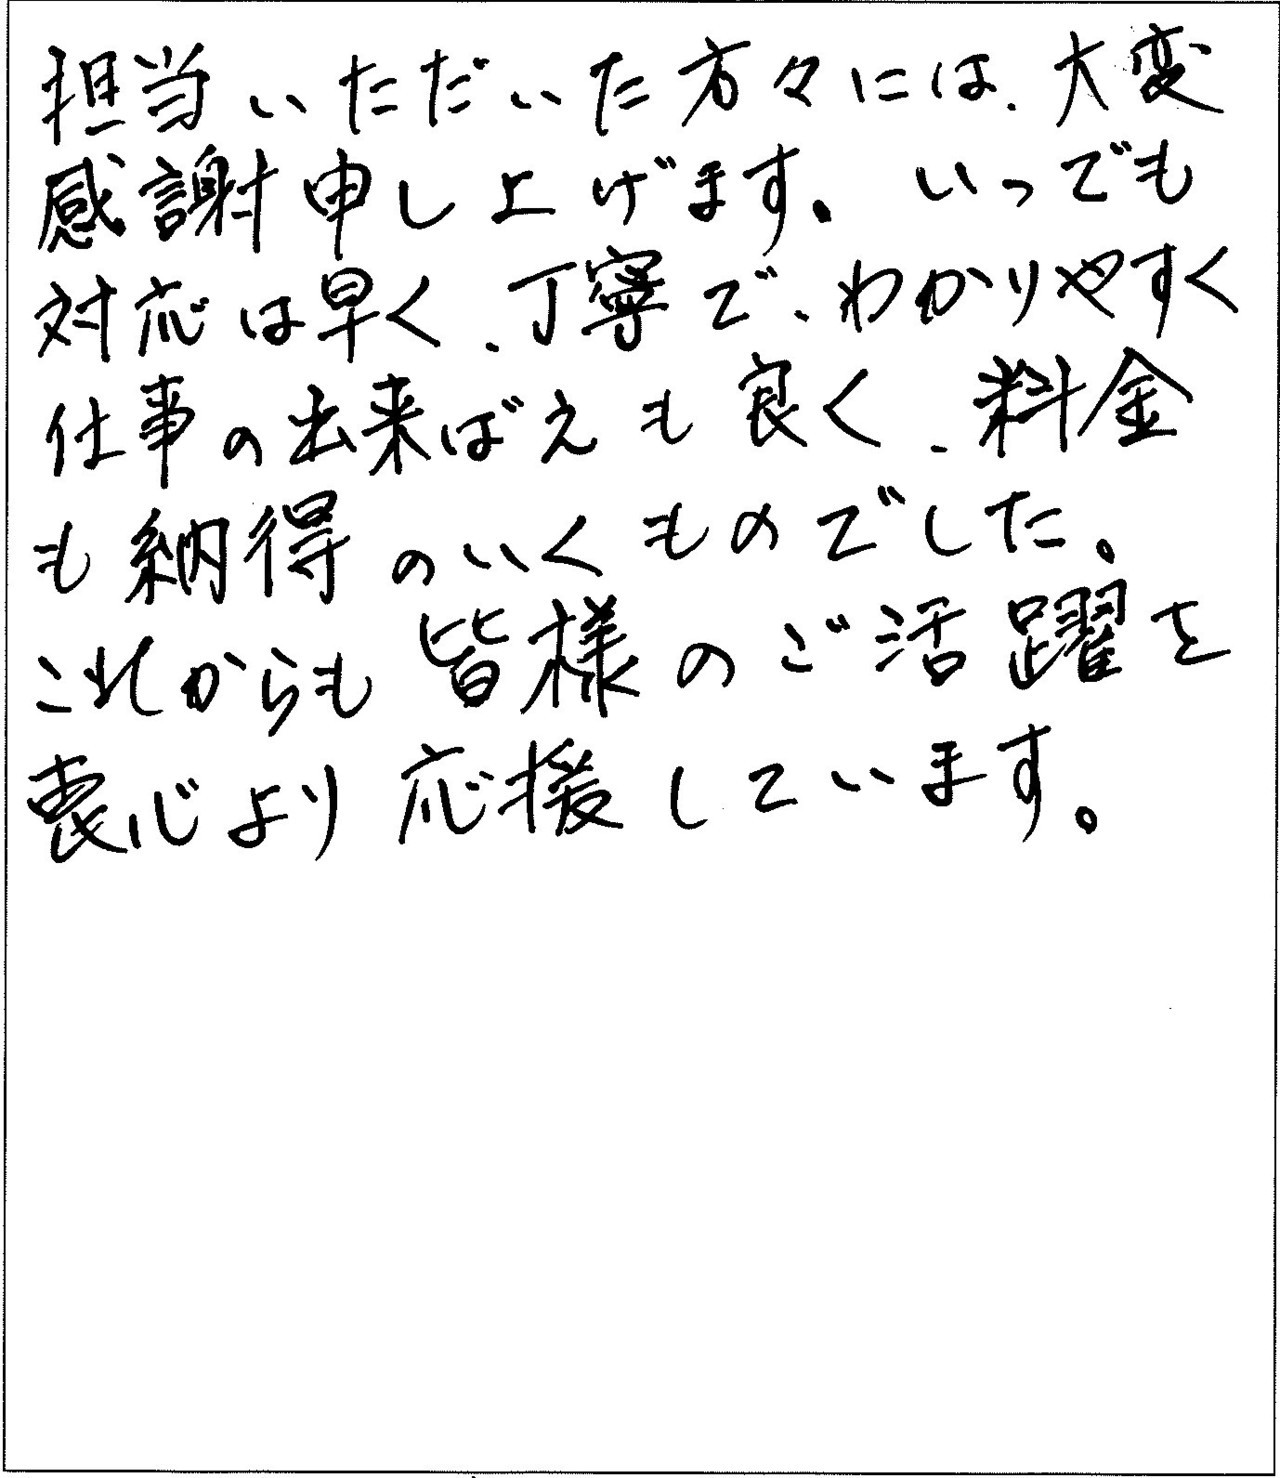 担当いただいた方々には、大変
感謝申し上げます。いつでも
対応は早く、丁寧で、わかりやすく
仕事の出来ばえも良く、料金
も納得のいくものでした。
これからも皆様のご活躍を
衷心より応援しています。